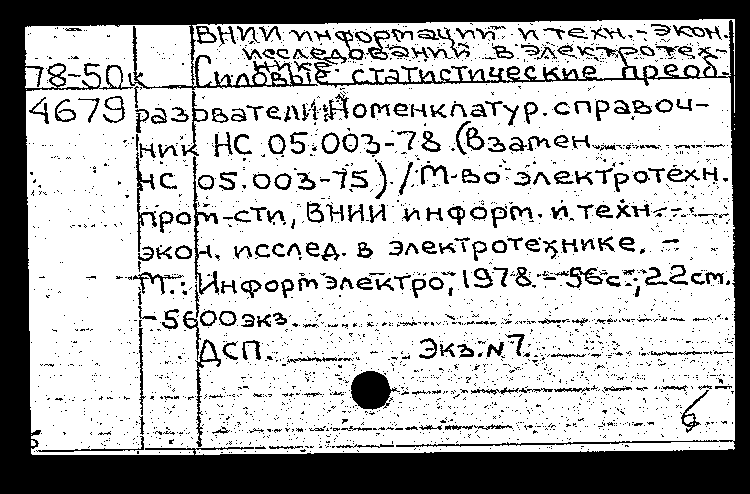 ВНИИ информации и техн.-экон.
исследований в электротех-
нике
78-50к Силовые статистические преоб-
4679 разователи: Номенклатур. справоч-
ник НС 05.003-78 (Взамен
НС 05.003-75) / М-во электротехн.
пром-сти, ВНИИ информ. и техн.-
экон. исслед. в электротехнике. -
М.: Информэлектро, 1978. - 56с.; 22см.
- 5600экз.
ДСП. Экз. №7.
6